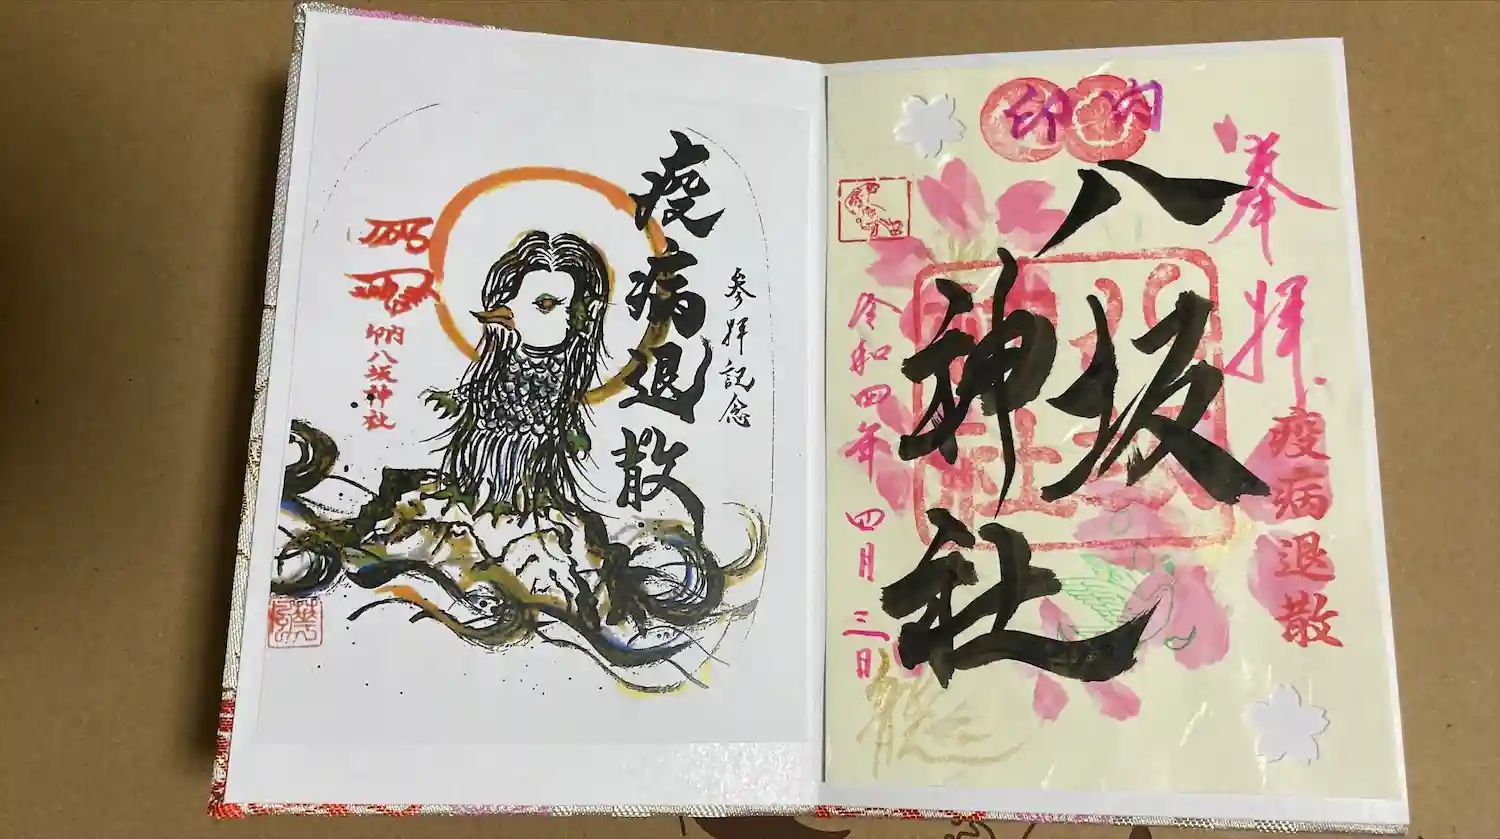 奉拝
疫病退散
印内
八坂
神社
八坂
神社
令和四年 四月 三日
参拝記念
疫病退散
印内八坂神社